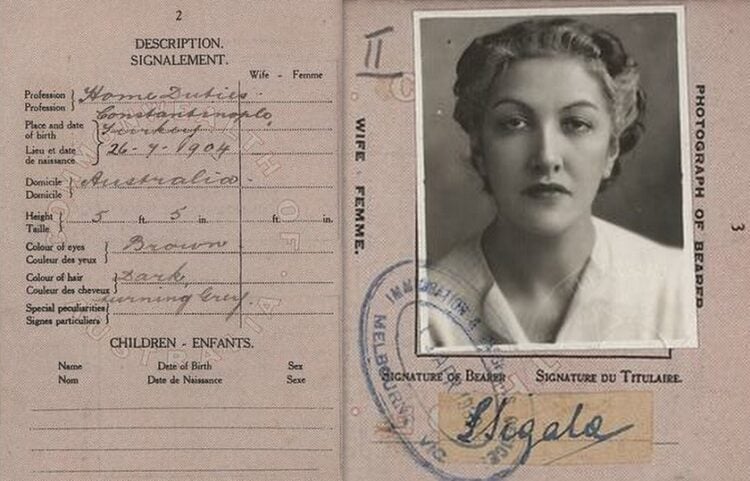 2
DESCRIPTION.
SIGNALEMENT.
Wife - Femme
Profession
Profession
Home Duties.
Place and date
of birth
Constantinople
Turkey
Lieu et date
de naissance
26-7-1904
Domicile
Domicile
Australia.
Height
Taille
5 ft. 5 in.
ft. in.
Colour of eyes
Couleur des yeux
Brown
Colour of hair
Couleur des cheveux
Dark,
turning Grey.
Special peculiarities
Signes particuliers
CHILDREN - ENFANTS.
Name Date of Birth Sex
Nom Date de Naissance Sexe
COMMONWEALTH OF AUSTRALIA
II
WIFE - FEMME.
PHOTOGRAPH OF BEARER
3
SIGNATURE OF BEARER SIGNATURE DU TITULAIRE.
MELBOURNE VIC
Sigala